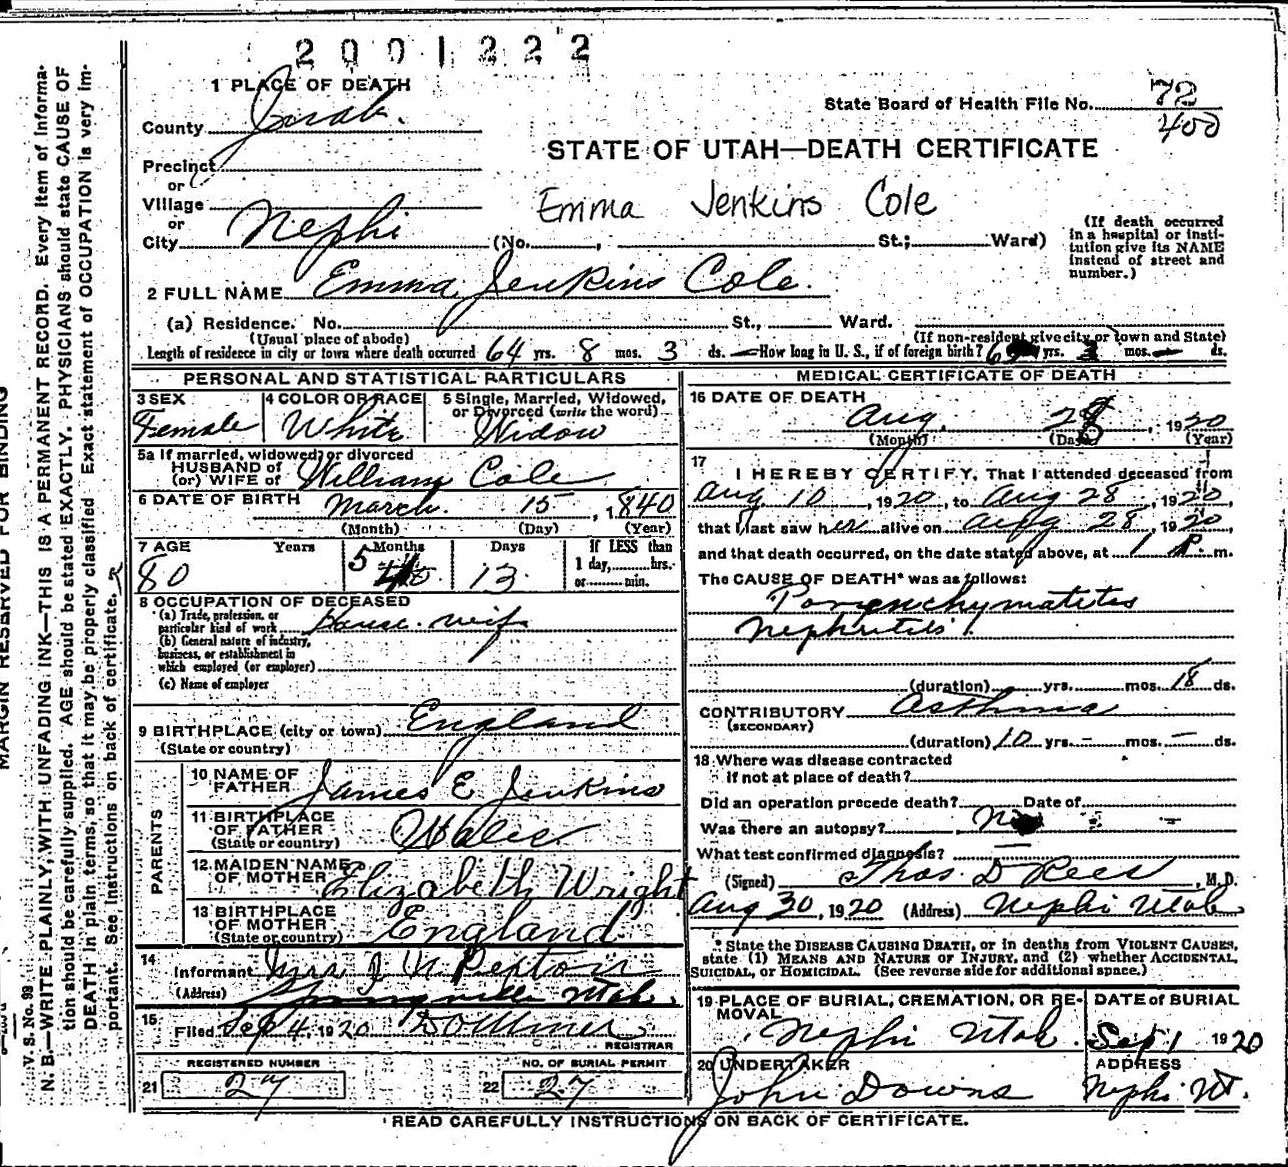 2001222
1 PLACE OF DEATH
County Juab.
State Board of Health File No. 72
400
STATE OF UTAH—DEATH CERTIFICATE
Precinct
or
Village
or
City Nephi (No. , St.; Ward)
Emma Jenkins Cole
(If death occurred in a hospital or institution give its NAME instead of street and number.)
2 FULL NAME Emma Jenkins Cole.
(a) Residence. No. St., Ward.
(Usual place of abode) (If non-resident give city or town and State)
Length of residence in city or town where death occurred 64 yrs. 8 mos. 3 ds. How long in U. S., if of foreign birth? yrs. mos. ds.
PERSONAL AND STATISTICAL PARTICULARS
3 SEX
Female
4 COLOR OR RACE
White
5 Single, Married, Widowed, or Divorced (write the word)
Widow
5a If married, widowed or divorced
HUSBAND of
(or) WIFE of William Cole
6 DATE OF BIRTH March 15, 1840
(Month) (Day) (Year)
7 AGE Years Months Days If LESS than
80 5 13 1 day, hrs.
or min.
8 OCCUPATION OF DECEASED
(a) Trade, profession, or
particular kind of work house wife
(b) General nature of industry,
business, or establishment in
which employed (or employer)
(c) Name of employer
9 BIRTHPLACE (city or town) England
(State or country)
PARENTS
10 NAME OF
FATHER James E. Jenkins
11 BIRTHPLACE
OF FATHER Wales
(State or country)
12 MAIDEN NAME
OF MOTHER Elizabeth Wright
13 BIRTHPLACE
OF MOTHER England
(State or country)
14
Informant Mrs
(Address) Springville Utah.
15
Filed Sep 4, 1920
REGISTRAR
REGISTERED NUMBER
21 27
NO. OF BURIAL PERMIT
22 27
MEDICAL CERTIFICATE OF DEATH
16 DATE OF DEATH
Aug. 28, 1920
(Month) (Day) (Year)
17
I HEREBY CERTIFY, That I attended deceased from
Aug 10, 1920, to Aug 28, 1920,
that I last saw her alive on Aug 28, 1920
and that death occurred, on the date stated above, at 1 P. m.
The CAUSE OF DEATH* was as follows:
Parenchymatites
Nephritis.
(duration) yrs. mos. 18 ds.
CONTRIBUTORY Asthma
(SECONDARY)
(duration) 10 yrs. - mos. - ds.
18 Where was disease contracted
if not at place of death?
Did an operation precede death? Date of
Was there an autopsy? No
What test confirmed diagnosis?
(Signed) Thos. D Rees, M. D.
Aug 30, 1920 (Address) Nephi Utah
* State the DISEASE CAUSING DEATH, or in deaths from VIOLENT CAUSES,
state (1) MEANS AND NATURE OF INJURY, and (2) whether ACCIDENTAL,
SUICIDAL, or HOMICIDAL. (See reverse side for additional space.)
19 PLACE OF BURIAL, CREMATION, OR RE-
MOVAL.
Nephi Utah.
DATE of BURIAL
Sept 1 1920
20 UNDERTAKER
John Downs
ADDRESS
Nephi Ut.
READ CAREFULLY INSTRUCTIONS ON BACK OF CERTIFICATE.
MARGIN RESERVED FOR BINDING
V. S. No. 98
N. B.—WRITE PLAINLY, WITH UNFADING INK—THIS IS A PERMANENT RECORD. Every item of informa-
tion should be carefully supplied. AGE should be stated EXACTLY. PHYSICIANS should state CAUSE OF
DEATH in plain terms, so that it may be properly classified Exact statement of OCCUPATION is very im-
portant. See Instructions on back of certificate.